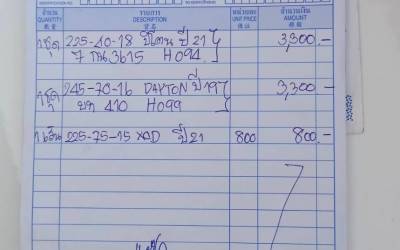 จำนวน รายการ หน่วยละ จำนวนเงิน
QUANTITY DESCRIPTION UNIT PRICE AMOUNT
1ชุด 225-40-18 ปี 21 3,300.-
7 กน 3615 H094
1ชุด 245-70-16 DAYTON ปี 19 3,300.-
บท 410 H099
1เส้น 225-75-15 ปี 21 800 800.-